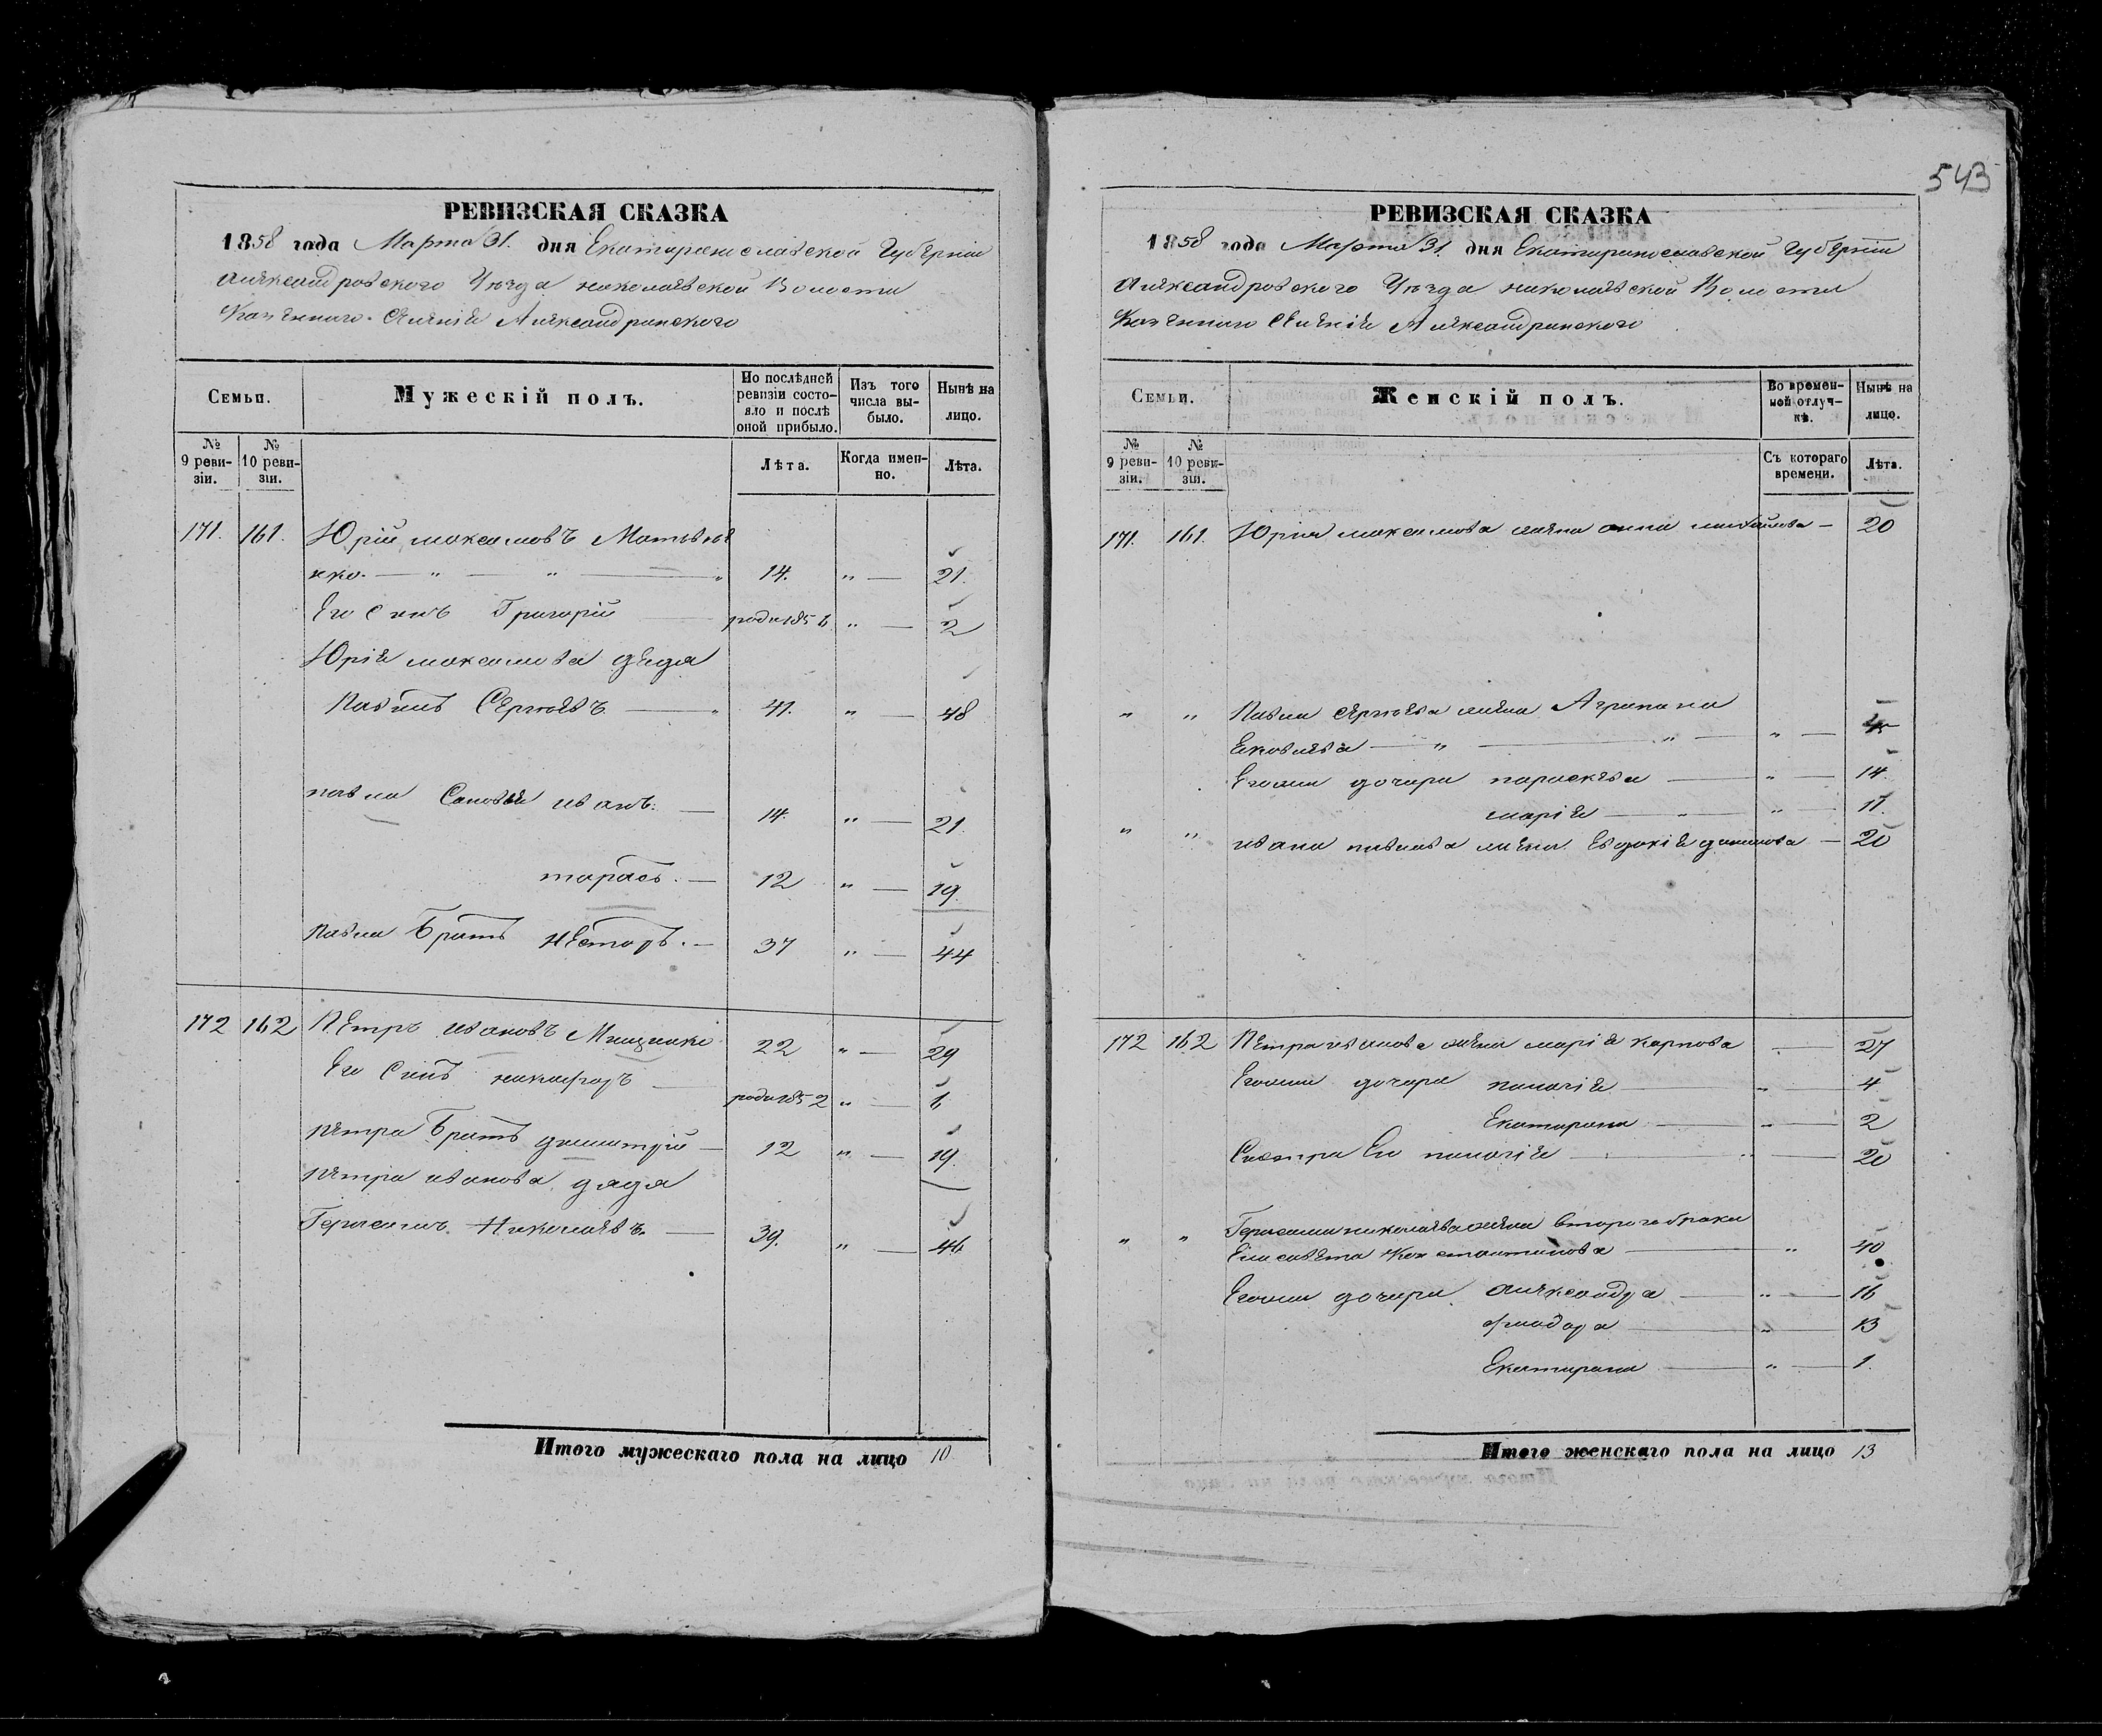 543
РЕВИЗСКАЯ СКАЗКА
1858 года Марта 31. дня Екатеринославской Губерніи
Александровскаго Уезда николаевской Волости
Казеннаго Селенія Александринского
Семьи. Мужескій полъ. По послѣдней ревизіи состояло и послѣ оной прибыло. Изъ того числа выбыло. Ныне на лицо.
№ 9 ревизіи. № 10 ревизіи. Лѣта. Когда именно. Лѣта.
171. 161. Юрій максимовъ Матвѣе
нко. — " — " — " 14. " — 21.
Его Синъ Григорій — родил185 6 " — 2
Юрія максимова деда
Павилъ Сергѣевъ — " 41. " — 48
павла Сановья иванъ. — 14. " — 21.
тарасъ. — 12 " — 19.
павла Братъ Несторъ. — 37 " — 44
172 162 Петръ ивановъ Мищенко 22 " — 29
Его Синъ никифоръ — родил185 2 " — 6
петра Братъ димитрій — 12 " — 19.
петра иванова дядя
Герасимъ Николаевъ. — 39. " — 46
Итого мужескаго пола на лицо 10.
РЕВИЗСКАЯ СКАЗКА
1858 года Марта 31. дня Екатеринославской Губерніи
Александровскаго Уезда николаевской Волости
Казеннаго Селенія Александринского
Семьи. Женскій полъ. Во временной отлучкѣ. Нынѣ на лицо.
№ 9 ревизіи. № 10 ревизіи. Съ котораго времени. Лѣта.
171. 161. Юрия максимова жена анна михайлова — 20
" " Павла сергѣева жена Агрипина
Ековлева — " — " — " — 45
Егоже дочери параскева — " — 14
марія — " — " — 11.
" " ивана павлова жена Евдокія данилова — 20
172 162 Петра иванова жена марія карпова — 27
Егоже дочери пилагія — " — 4
Екатирина — " — 2
Систра Ево пилагія — " — 20
" " Герасима николаева жена второго брака
Елисавета Константинова — " 40
Егоже дочери Александра — " — 16
феодора — " — 13
Екатирина — " — 1.
Итого женскаго пола на лицо 13